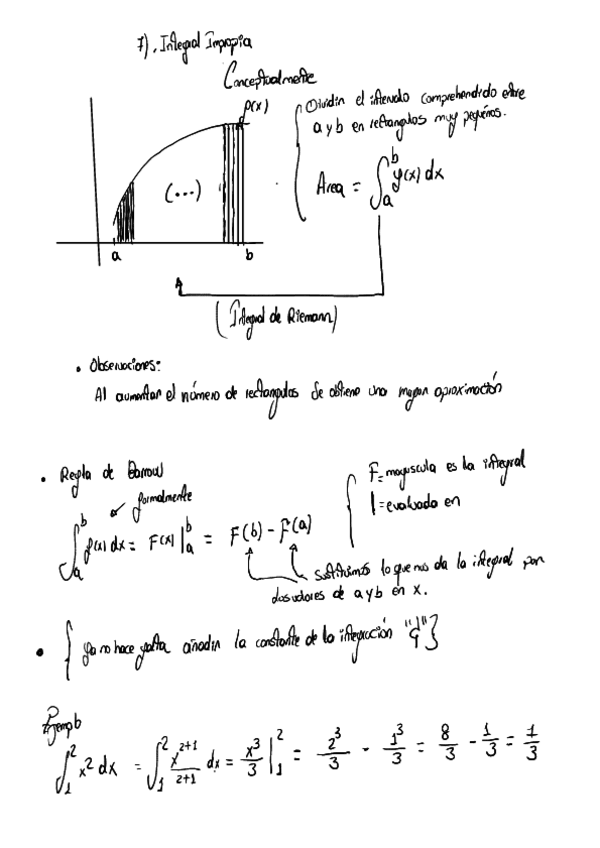 7). Integral Impropia
Conceptualmente
f(x)
Dividir el intervalo comprehendido entre
a y b en rectangulos muy pequeños.
Area = ∫_a^b f(x) dx
(...)
a b
(Integral de Riemann)
• Observaciones:
Al aumentar el número de rectangulos se obtiene una mayor aproximación
• Regla de Barrow
formalmente
∫_a^b f(x) dx = F(x) |_a^b = F(b) - F(a)
F = mayuscula es la integral
| = evaluado en
Sustituimos lo que nos da la integral por
los valores de a y b en x.
• { ya no hace falta añadir la constante de la integración "C" }
Ejemplo
∫_1^2 x^2 dx = ∫_1^2 x^{2+1}/2+1 dx = x^3/3 |_1^2 = 2^3/3 - 1^3/3 = 8/3 - 1/3 = 7/3